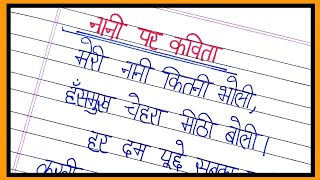 नानी पर कविता
मेरी नानी कितनी भोली,
हँसमुख चेहरा मीठी बोली।
हर दम पूछे